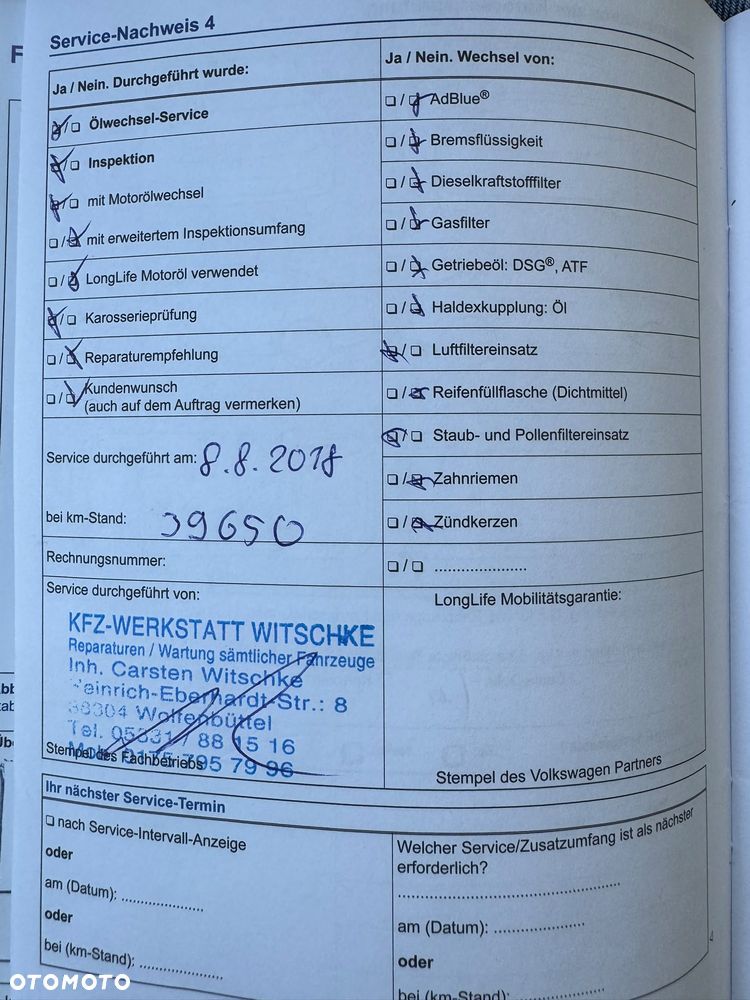 Service-Nachweis 4
Ja / Nein. Durchgeführt wurde:
Ölwechsel-Service
Inspektion
mit Motorölwechsel
mit erweitertem Inspektionsumfang
LongLife Motoröl verwendet
Karosserieprüfung
Reparaturempfehlung
Kundenwunsch
(auch auf dem Auftrag vermerken)
Service durchgeführt am: 8.8.2018
bei km-Stand: 39650
Rechnungsnummer:
Service durchgeführt von:
KFZ-WERKSTATT WITSCHKE
Reparaturen / Wartung sämtlicher Fahrzeuge
Inh. Carsten Witschke
Heinrich-Eberhardt-Str.: 8
38304 Wolfenbüttel
Tel. 05331 / 88 15 16
Mobil 0175 795 79 96
Stempel des Fachbetriebs
Ja / Nein. Wechsel von:
AdBlue®
Bremsflüssigkeit
Dieselkraftstofffilter
Gasfilter
Getriebeöl: DSG®, ATF
Haldexkupplung: Öl
Luftfiltereinsatz
Reifenfüllflasche (Dichtmittel)
Staub- und Pollenfiltereinsatz
Zahnriemen
Zündkerzen
LongLife Mobilitätsgarantie:
Stempel des Volkswagen Partners
Ihr nächster Service-Termin
nach Service-Intervall-Anzeige
oder
am (Datum):
oder
bei (km-Stand):
Welcher Service/Zusatzumfang ist als nächster
erforderlich?
am (Datum):
oder
bei (km-Stand):
4
OTOMOTO